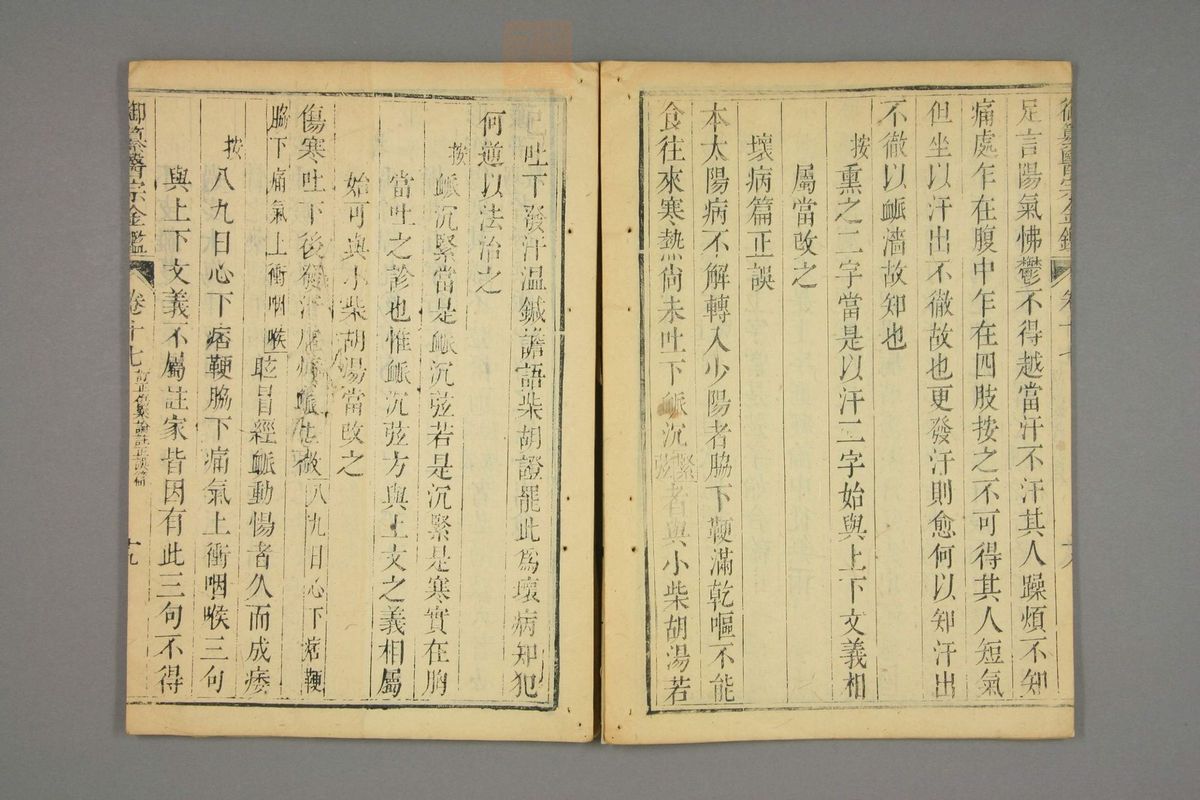 御纂醫宗金鑑 卷十七 十八
足言陽氣怫鬱不得越當汗不汗其人躁煩不知
痛處乍在腹中乍在四肢按之不可得其人短氣
但坐以汗出不徹故也更發汗則愈何以知汗出
不徹以脈濇故知也
按熏之二字當是以汗二字始與上下文義相
屬當改之
壞病篇正誤
本太陽病不解轉入少陽者脇下鞕滿乾嘔不能
食往來寒熱尚未吐下脈沉緊弦者與小柴胡湯若
已吐下發汗溫鍼譫語柴胡證罷此爲壞病知犯
何逆以法治之
按脈沉緊當是脈沉弦若是沉緊是寒實在胸
當吐之診也惟脈沉弦方與上文之義相屬
始可與小柴胡湯當改之
傷寒吐下後發汗虛煩脈甚微八九日心下痞鞕
脇下痛氣上衝咽喉眩冒經脈動惕者久而成痿
按八九日心下痞鞕脇下痛氣上衝咽喉三句
與上下文義不屬註家皆因有此三句不得
御纂醫宗金鑑 卷十七 訂正傷寒論註正誤篇 十九